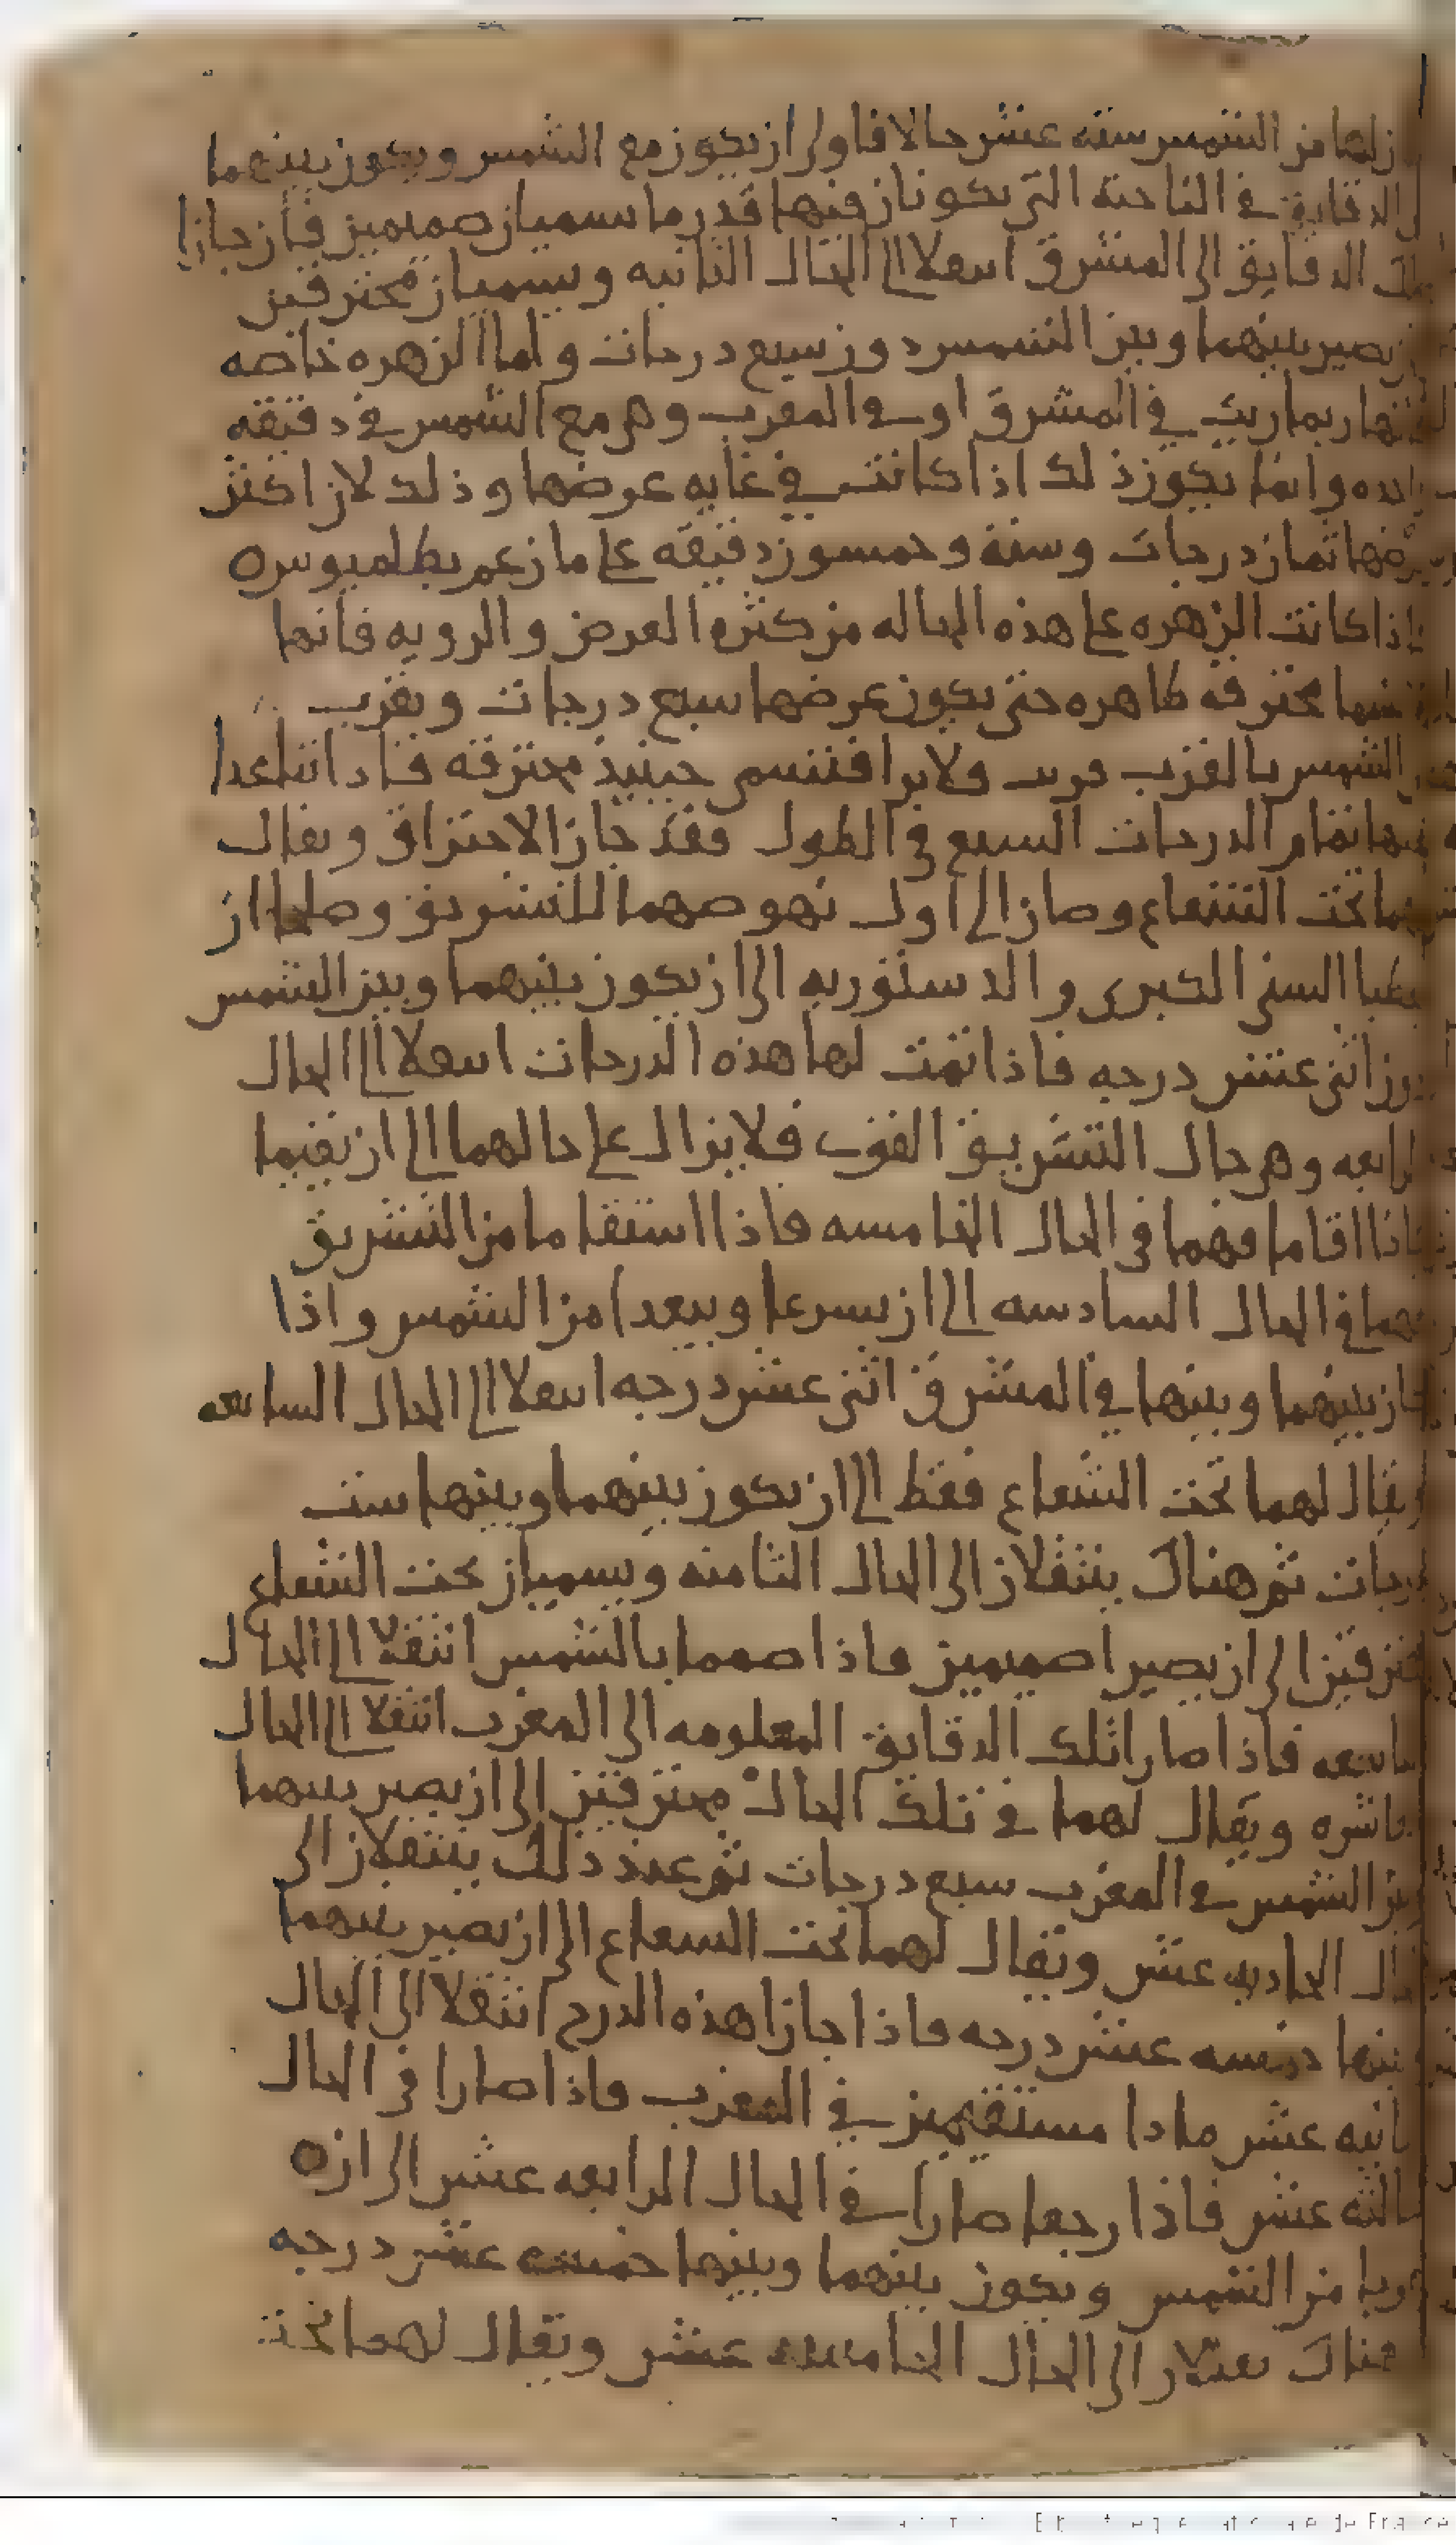 لها من الشمس ستة عشر حالا فاولى ان يكون مع الشمس ويكون بينهما
الدقايق في الناحية التي يكونان فيها قدر ما يسميان صميمين فان جازا
تلك الدقايق الى المشرق انتقلا الى الحال الثانيه ويسميان محترقين
يصير بينهما وبين الشمس دون سبع درجات واما الزهره خاصه
فانها ربما ريت في المشرق او في المغرب وهي مع الشمس في دقيقه
واحده وانما يكون ذلك اذا كانت في غايه عرضها وذلك لان اكثر
عرضها ثمان درجات وستة وخمسون دقيقه على ما زعم بطلميوس ه
فاذا كانت الزهره على هذه الحاله من كثره العرض والرويه فانها
محترقه ظاهره حتى يكون عرضها سبع درجات وبقرب
الشمس بالقرب ولا يرا فتسمى حينيذ محترقه فاذا تباعدا
منها تمام الدرجات السبع في الطول فقد جاز الاحتراق ويقال
لهما تحت الشعاع وصار الى اول نهوضهما للتشريق وصلحا ان
يعطيا السني الكبرى والدستوريه الى ان يكون بينهما وبين الشمس
دون اثنى عشر درجه فاذا تمت لها هذه الدرجات انتقلا الى الحال
الرابعه وهي حال التشريق القوي فلا يزال على حالهما الى ان يقيما
فاذا اقاما فهما في الحال الخامسه فاذا استقاما من التشريق
فهما في الحال السادسه الى ان يسرعا ويبعدا من الشمس واذا
كان بينهما وبينها في المشرق اثنى عشر درجه انتقلا الى الحال السابعه
ويقال لهما تحت الشعاع فقط الى ان يكون بينهما وبينها ست
درجات ثم هناك ينتقلان الى الحال الثامنه ويسميان تحت الشعاع
محترقين الى ان يصيرا صميمين فاذا صمما بالشمس انتقلا الى الحال
التاسعه فاذا صارا تلك الدقايق المعلومه الى المغرب انتقلا الى الحال
العاشره ويقال لهما في تلك الحال محترقين الى ان يصير بينهما
وبين الشمس في المغرب سبع درجات ثم عند ذلك ينتقلان الى
الحال الحاديه عشر ويقال لهما تحت الشعاع الى ان يصير بينهما
وبينها خمسه عشر درجه فاذا جازا هذه الدرج انتقلا الى الحال
الثانيه عشر ما دا مستقيمين في المغرب فاذا صارا في الحال
الثالثه عشر فاذا رجعا صارا في الحال الرابعه عشر الى ان ه
يقربا من الشمس ويكون بينهما وبينها خمسه عشر درجه
هناك ينتقلان الى الحال الخامسه عشر ويقال لهما تحت